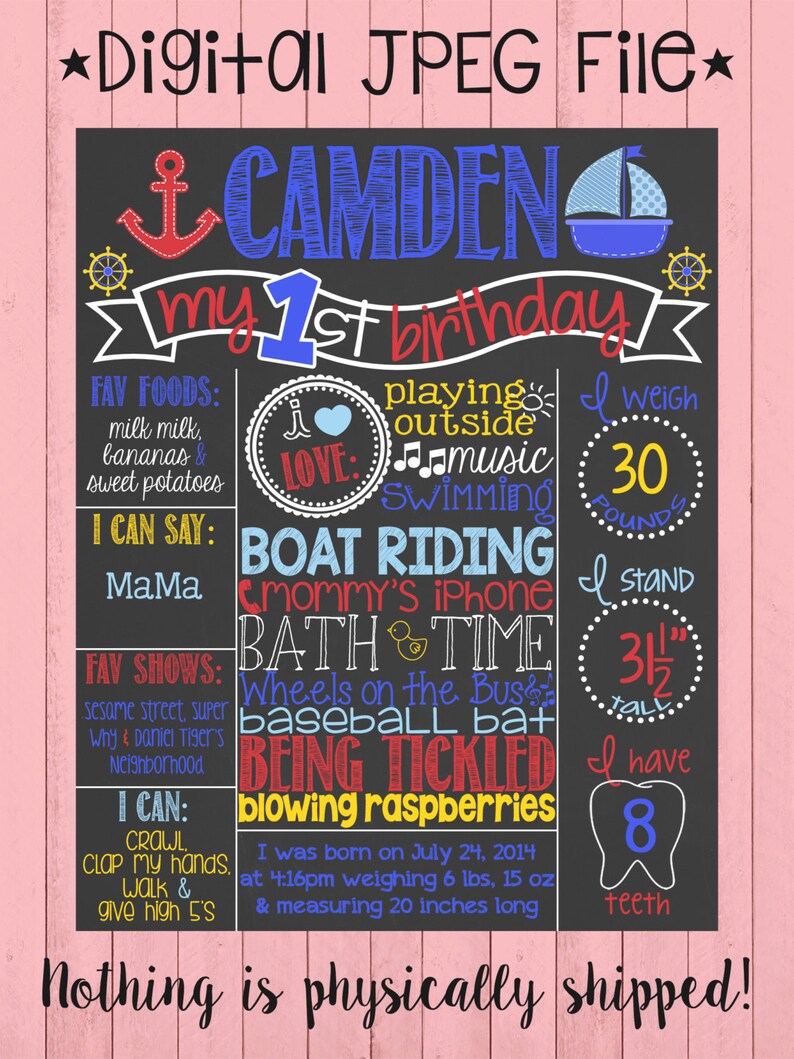 ★Digital JPEG File★
CAMDEN
my 1st birthday
FAV FOODS:
milk milk,
bananas &
sweet potatoes
I CAN SAY:
MaMa
FAV SHOWS:
sesame street, super
why & Daniel Tiger's
Neighborhood
I CAN:
crawl,
clap my hands,
walk &
give high 5's
i
LOVE:
playing
outside
music
swimming
BOAT RIDING
mommy's iPhone
BATH TIME
Wheels on the Bus
baseball bat
BEING TICKLED
blowing raspberries
I was born on July 24, 2014
at 4:16pm weighing 6 lbs, 15 oz
& measuring 20 inches long
I weigh
30
POUNDS
I stand
31 1/2"
tall
I have
8
teeth
Nothing is physically shipped!